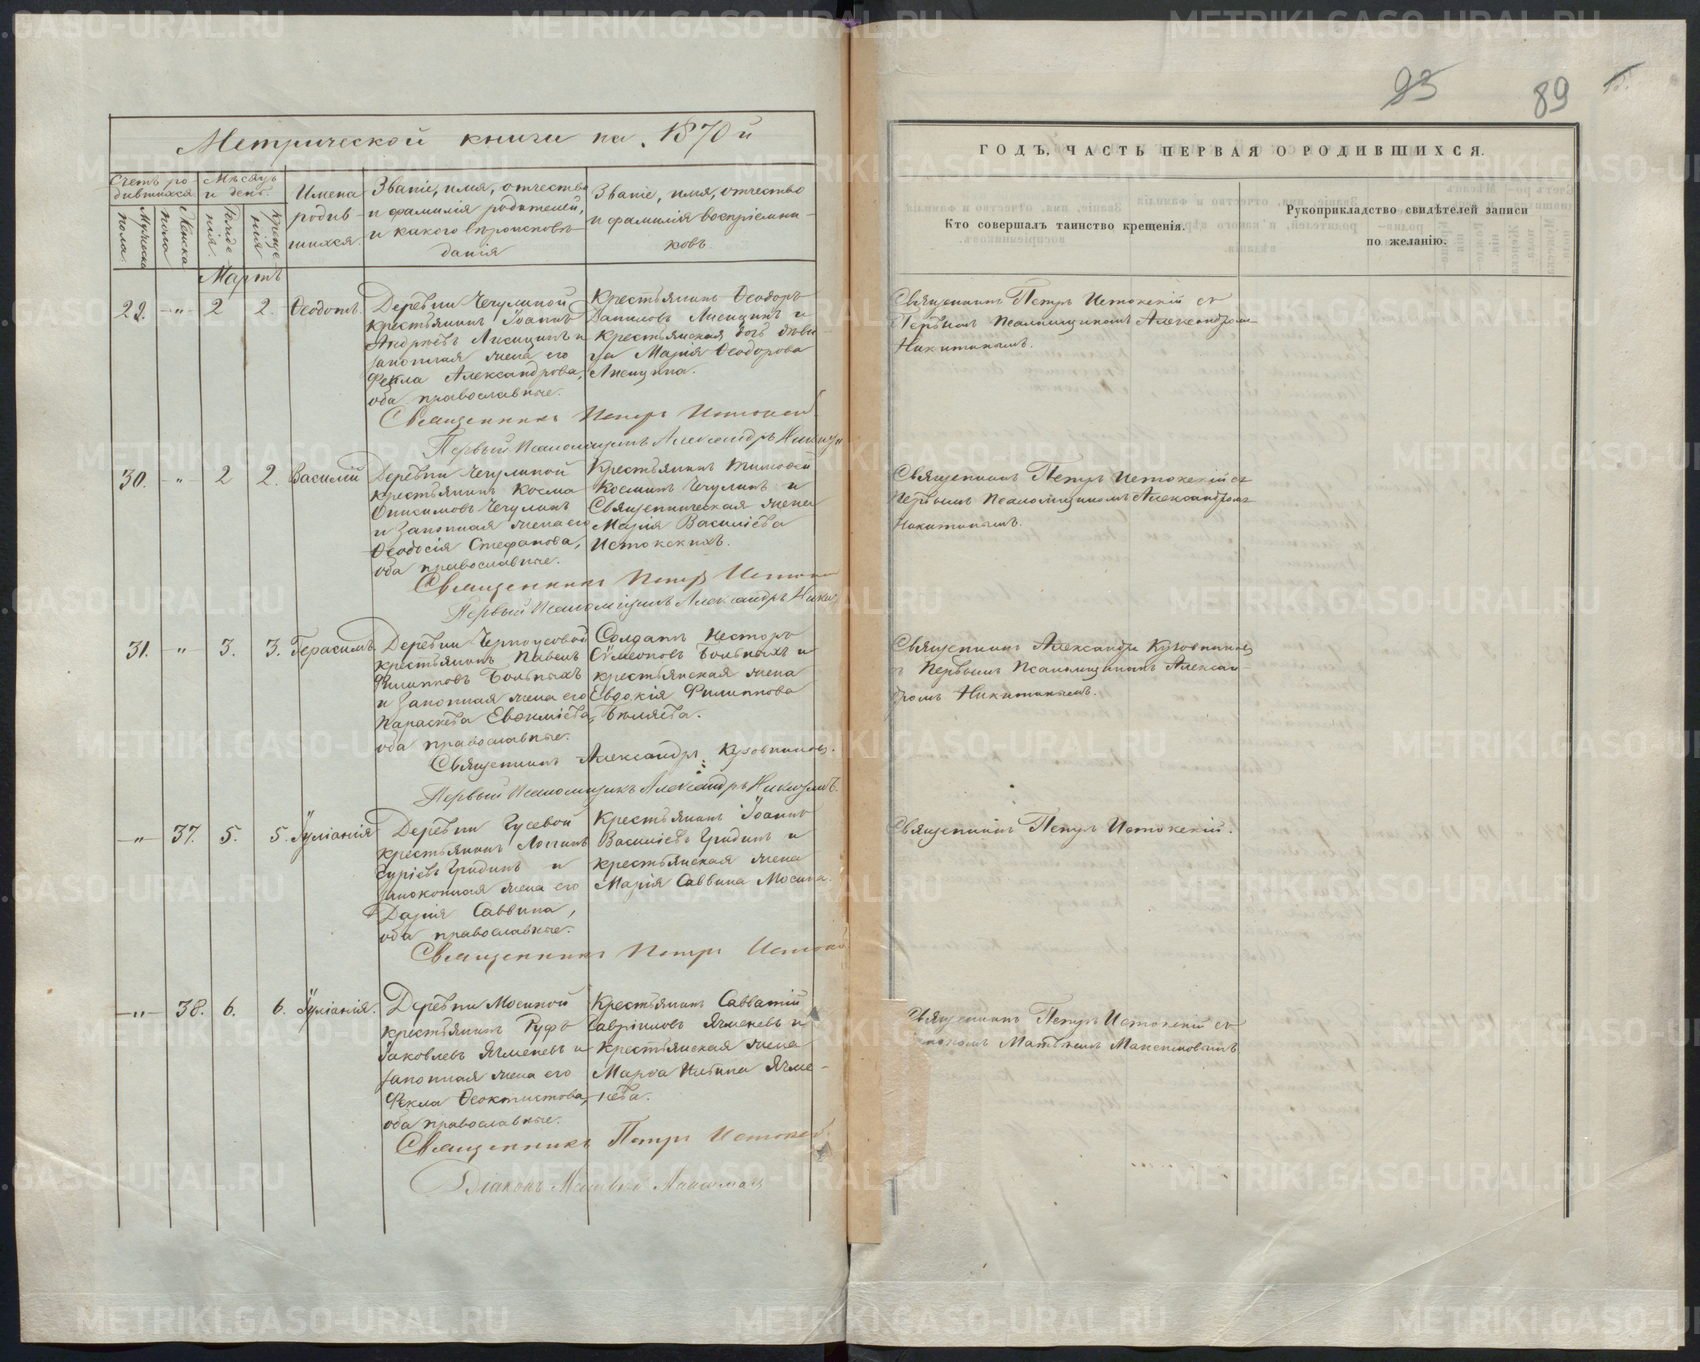 Метрической книги на 1870й
Счетъ ро-
дившихся
Мѣсяцъ
и день
Мужеска
пола
Женска
пола
Рожде-
нія
Креще-
нія
Имена
родив-
шихся.
Званіе, имя, отчество
и фамилія родителей,
и какого вѣроисповѣ-
данія
Званіе, имя, отчество
и фамилія воспріемни-
ковъ.
Мартъ
29. -"- 2 2. Ѳеодотъ.
Деревни Чечулиной
крестьянинъ Іоаннъ
Андреевъ Лисицинъ и
законная жена его
Фекла Александрова,
оба православные.
Крестьянинъ Ѳеодоръ
Даниловъ Лисицинъ и
крестьянская дочь дѣви-
ца Марія Ѳеодорова
Лисицина.
Священникъ Петръ Истокскій
Первый Псаломщикъ Александръ Никити
30. -"- 2 2. Василій
Деревни Чечулиной
крестьянинъ Косма
Онисимовъ Чечулинъ
и законная жена его
Ѳеодосія Стефанова,
оба православные.
Крестьянинъ Тимоѳей
Косминъ Чечулинъ и
Священническая жена
Марія Васильева
Истокскихъ.
Священникъ Петръ Истокс
Первый Псаломщикъ Александръ Ники
31. -"- 3. 3. Герасимъ.
Деревни Черноусовой
крестьянинъ Павелъ
Филипповъ Больныхъ
и законная жена его
Параскева Евѳиміева,
оба православные.
Солдатъ Несторъ
Сѵмеоновъ Больныхъ и
крестьянская жена
Евдокія Филиппова
Бѣляева.
Священникъ Александръ Кузовниковъ.
Первый Псаломщикъ Александръ Никитинъ.
-"- 37. 5. 5. Іуліанія
Деревни Гусевой
крестьянинъ Логинъ
Гуріевъ Грядинъ и
законная жена его
Дарія Саввина,
оба православные.
Крестьянинъ Іоаннъ
Васильевъ Грядинъ и
крестьянская жена
Марія Саввина Мосина.
Священникъ Петръ Исток
-"- 38. 6. 6. Іуліанія.
Деревни Мосиной
крестьянинъ Руфъ
Іаковлевъ Ячменевъ и
законная жена его
Фекла Ѳеоктистова,
оба православные.
Крестьянинъ Савватій
Гавріиловъ Ячменевъ и
крестьянская жена
Марѳа Ячме-
нева.
Священникъ Петръ Истокскій.
Діаконъ Матвей Максимовъ
93 89
ГОДЪ, ЧАСТЬ ПЕРВАЯ О РОДИВШИХСЯ.
Кто совершалъ таинство крещенія.
Рукоприкладство свидѣтелей записи
по желанію.
Священникъ Петръ Истокскій съ
Первымъ Псаломщикомъ Александромъ
Никитинымъ.
Священникъ Петръ Истокскій съ
Первымъ Псаломщикомъ Александромъ
Никитинымъ.
Священникъ Александръ Кузовниковъ
съ Первымъ Псаломщикомъ Алексан-
дромъ Никитинымъ.
Священникъ Петръ Истокскій.
Священникъ Петръ Истокскій съ
Матвѣемъ Максимовымъ
METRIKI.GASO-URAL.RU